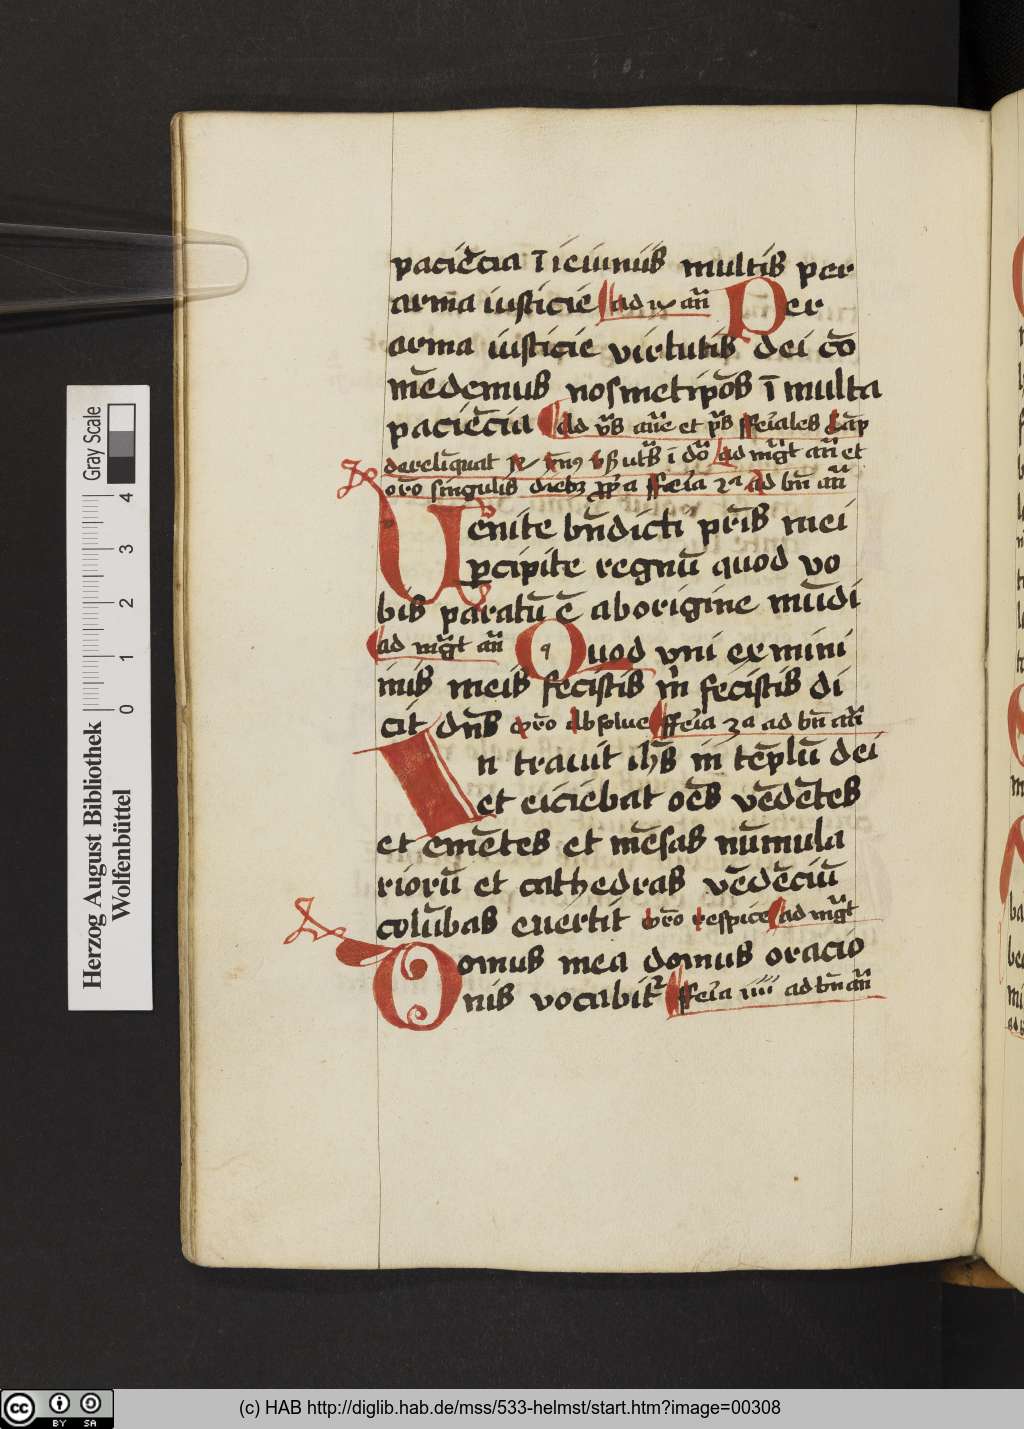 paciēcia ī ieiuniis multis per
arm̄a iusticie ad ix an̄ Per
arma iusticie virtutis dei cō
mēdemus nosmetip̄os ī multa
paciēcia Ad vr̄s an̄e et pr̄s ffeiales Cap̄
derelinquat ymn9 vs̄ ut s̄ ī dō ad mgt̄ an̄ et
oro singulis diebz ffeia 2a ad bn̄ an̄
Uenite bn̄dicti pr̄is mei
percipite regnū quod vo
bis paratū ē ab origine mūdi
ad mgt̄ an̄ Quod vni ex mini
mis meis fecistis m̄ fecistis di
cit dn̄s oro Absolue ffeia 3a ad bn̄ an̄
Intrauit ih̄s in tēplū dei
et eiciebat oēs vēdētes
et emētes et mēsas nūmula
riorū et cathedras vēdēciū
colūbas euertit oro respice ad mgt̄
Domus mea domus oracio
nis vocabit2 ffeia iiii ad bn̄ an̄
Herzog August Bibliothek
Wolfenbüttel
Gray Scale
0 1 2 3 4
cc BY SA
(c) HAB http://diglib.hab.de/mss/533-helmst/start.htm?image=00308